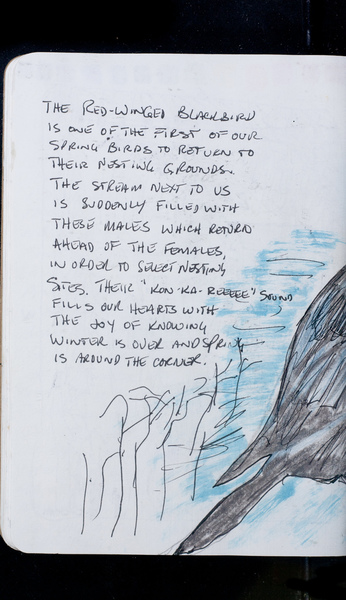 THE RED-WINGED BLACKBIRD
IS ONE OF THE FIRST OF OUR
SPRING BIRDS TO RETURN TO
THEIR NESTING GROUNDS.
THE STREAM NEXT TO US
IS SUDDENLY FILLED WITH
THESE MALES WHICH RETURN
AHEAD OF THE FEMALES,
IN ORDER TO SELECT NESTING
SITES. THEIR "KON-KA-REEEEE" SOUND
FILLS OUR HEARTS WITH
THE JOY OF KNOWING
WINTER IS OVER AND SPRING
IS AROUND THE CORNER.